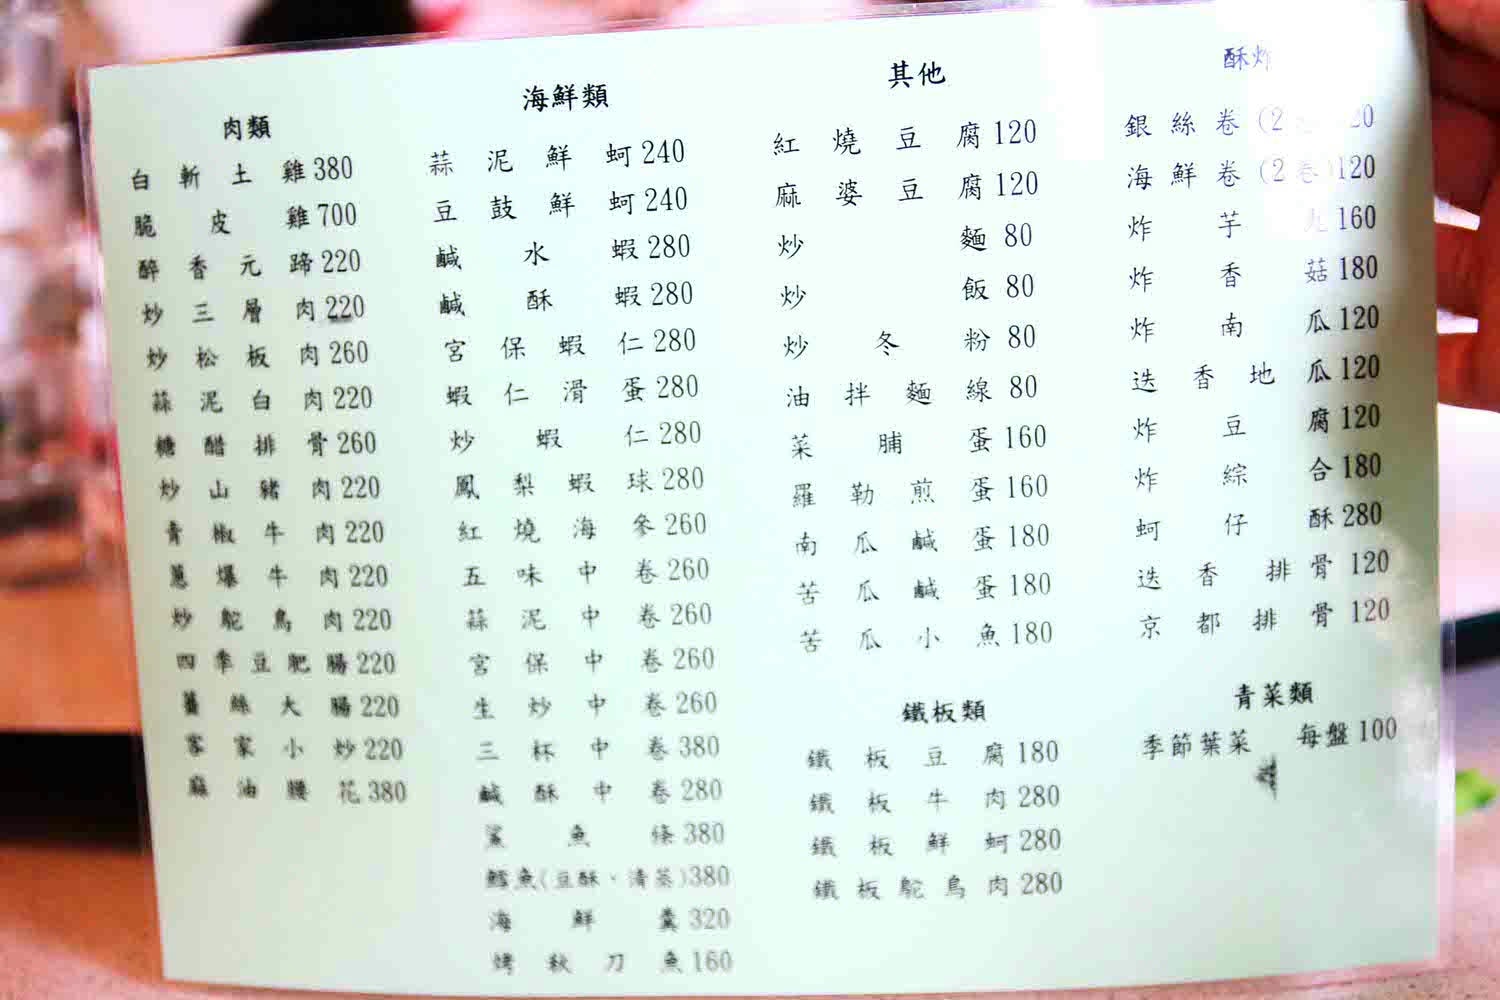 肉類
白斬土雞380
脆皮雞700
醉香元蹄220
炒三層肉220
炒松板肉260
蒜泥白肉220
糖醋排骨260
炒山豬肉220
青椒牛肉220
蔥爆牛肉220
炒鴕鳥肉220
四季豆肥腸220
薑絲大腸220
客家小炒220
麻油腰花380
海鮮類
蒜泥鮮蚵240
豆鼓鮮蚵240
鹹水蝦280
鹹酥蝦280
宮保蝦仁280
蝦仁滑蛋280
炒蝦仁280
鳳梨蝦球280
紅燒海參260
五味中卷260
蒜泥中卷260
宮保中卷260
生炒中卷260
三杯中卷380
鹹酥中卷280
鯊魚條380
鱈魚(豆酥、清蒸)380
海鮮羹320
烤秋刀魚160
其他
紅燒豆腐120
麻婆豆腐120
炒麵80
炒飯80
炒冬粉80
油拌麵線80
菜脯蛋160
羅勒煎蛋160
南瓜鹹蛋180
苦瓜鹹蛋180
苦瓜小魚180
鐵板類
鐵板豆腐180
鐵板牛肉280
鐵板鮮蚵280
鐵板鴕鳥肉280
酥炸
銀絲卷(2 20
海鮮卷(2卷)120
炸芋丸160
炸香菇180
炸南瓜120
迭香地瓜120
炸豆腐120
炸綜合180
蚵仔酥280
迭香排骨120
京都排骨120
青菜類
季節葉菜 每盤100